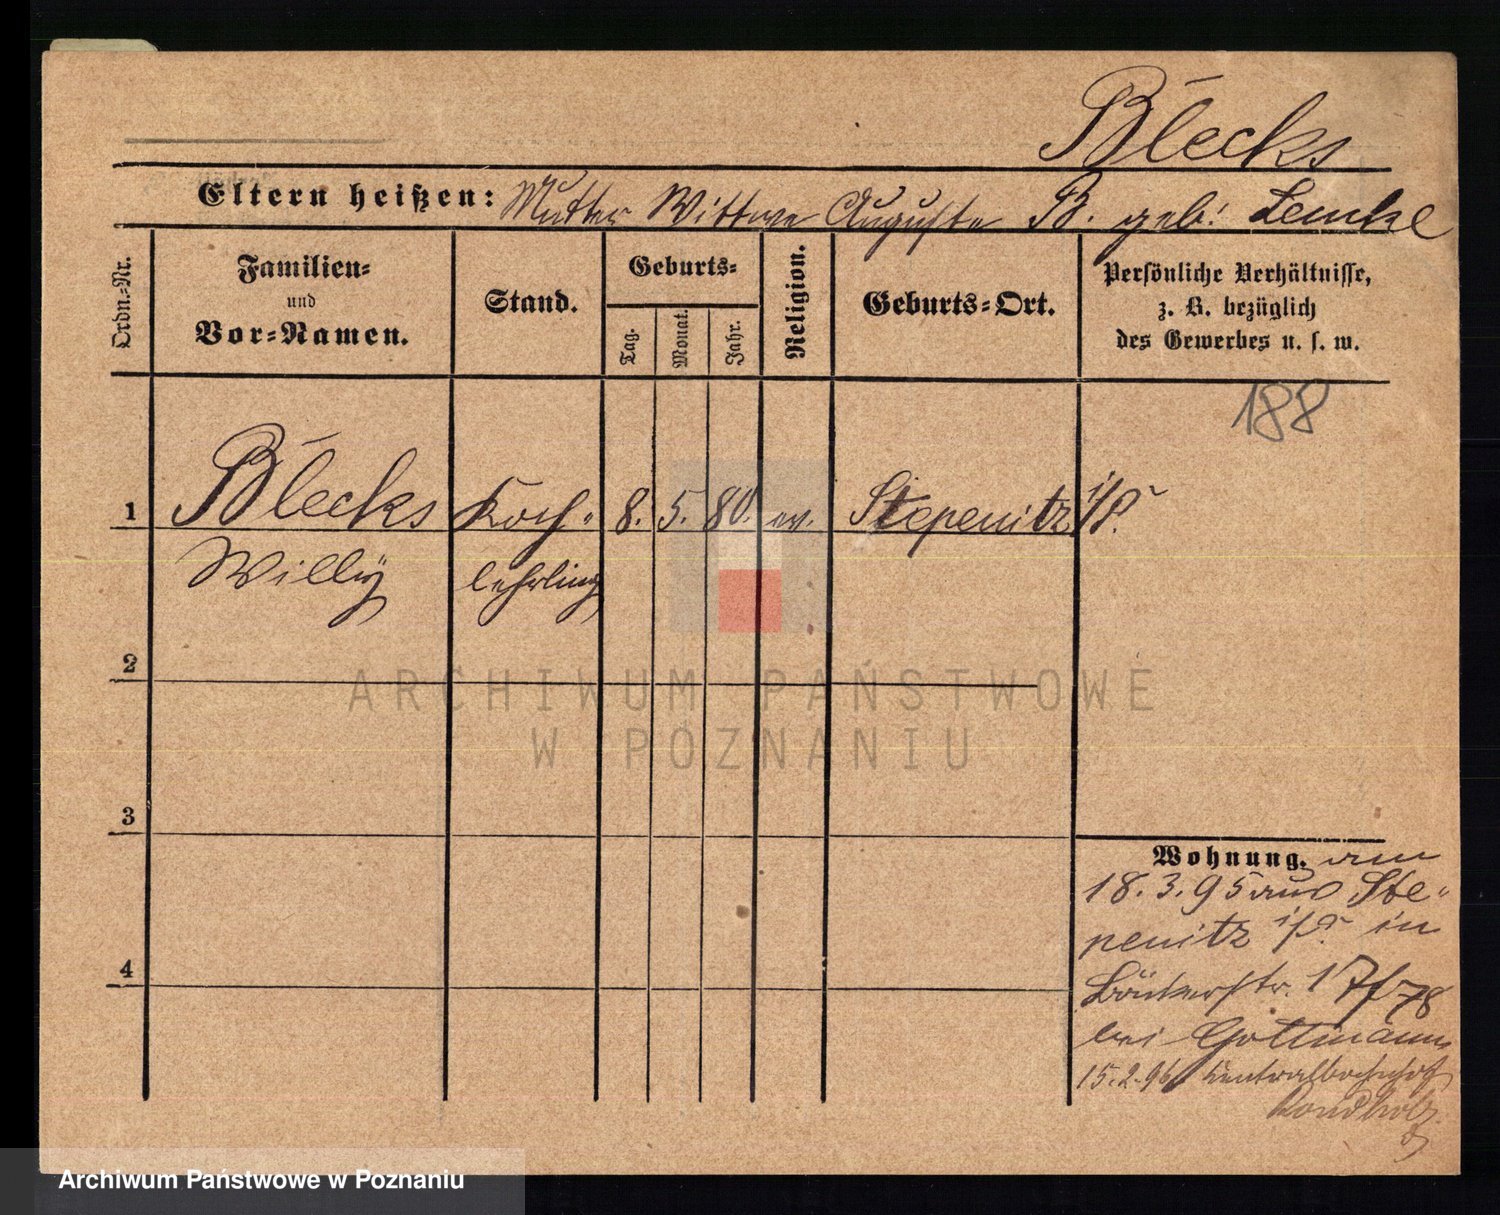 Blecks
Eltern heißen: Mutter Wittwe Auguste B. geb. Lemke
Ordn.-Nr.
Familien-
und
Vor-Namen.
Stand.
Geburts-
Tag.
Monat.
Jahr.
Religion.
Geburts-Ort.
Persönliche Verhältnisse,
z. B. bezüglich
des Gewerbes u. s. w.
188
1 Blecks Koch- 8. 5. 80. ev. Stepenitz i/P.
Willy lehrling
2
3
4
Wohnung. am
18.3.95 aus Ste-
penitz i/P. in
Bäckerstr. 17/78
bei Gottmann
15.2.96 Centralbahnhof
ARCHIWUM PAŃSTWOWE
W POZNANIU
Archiwum Państwowe w Poznaniu